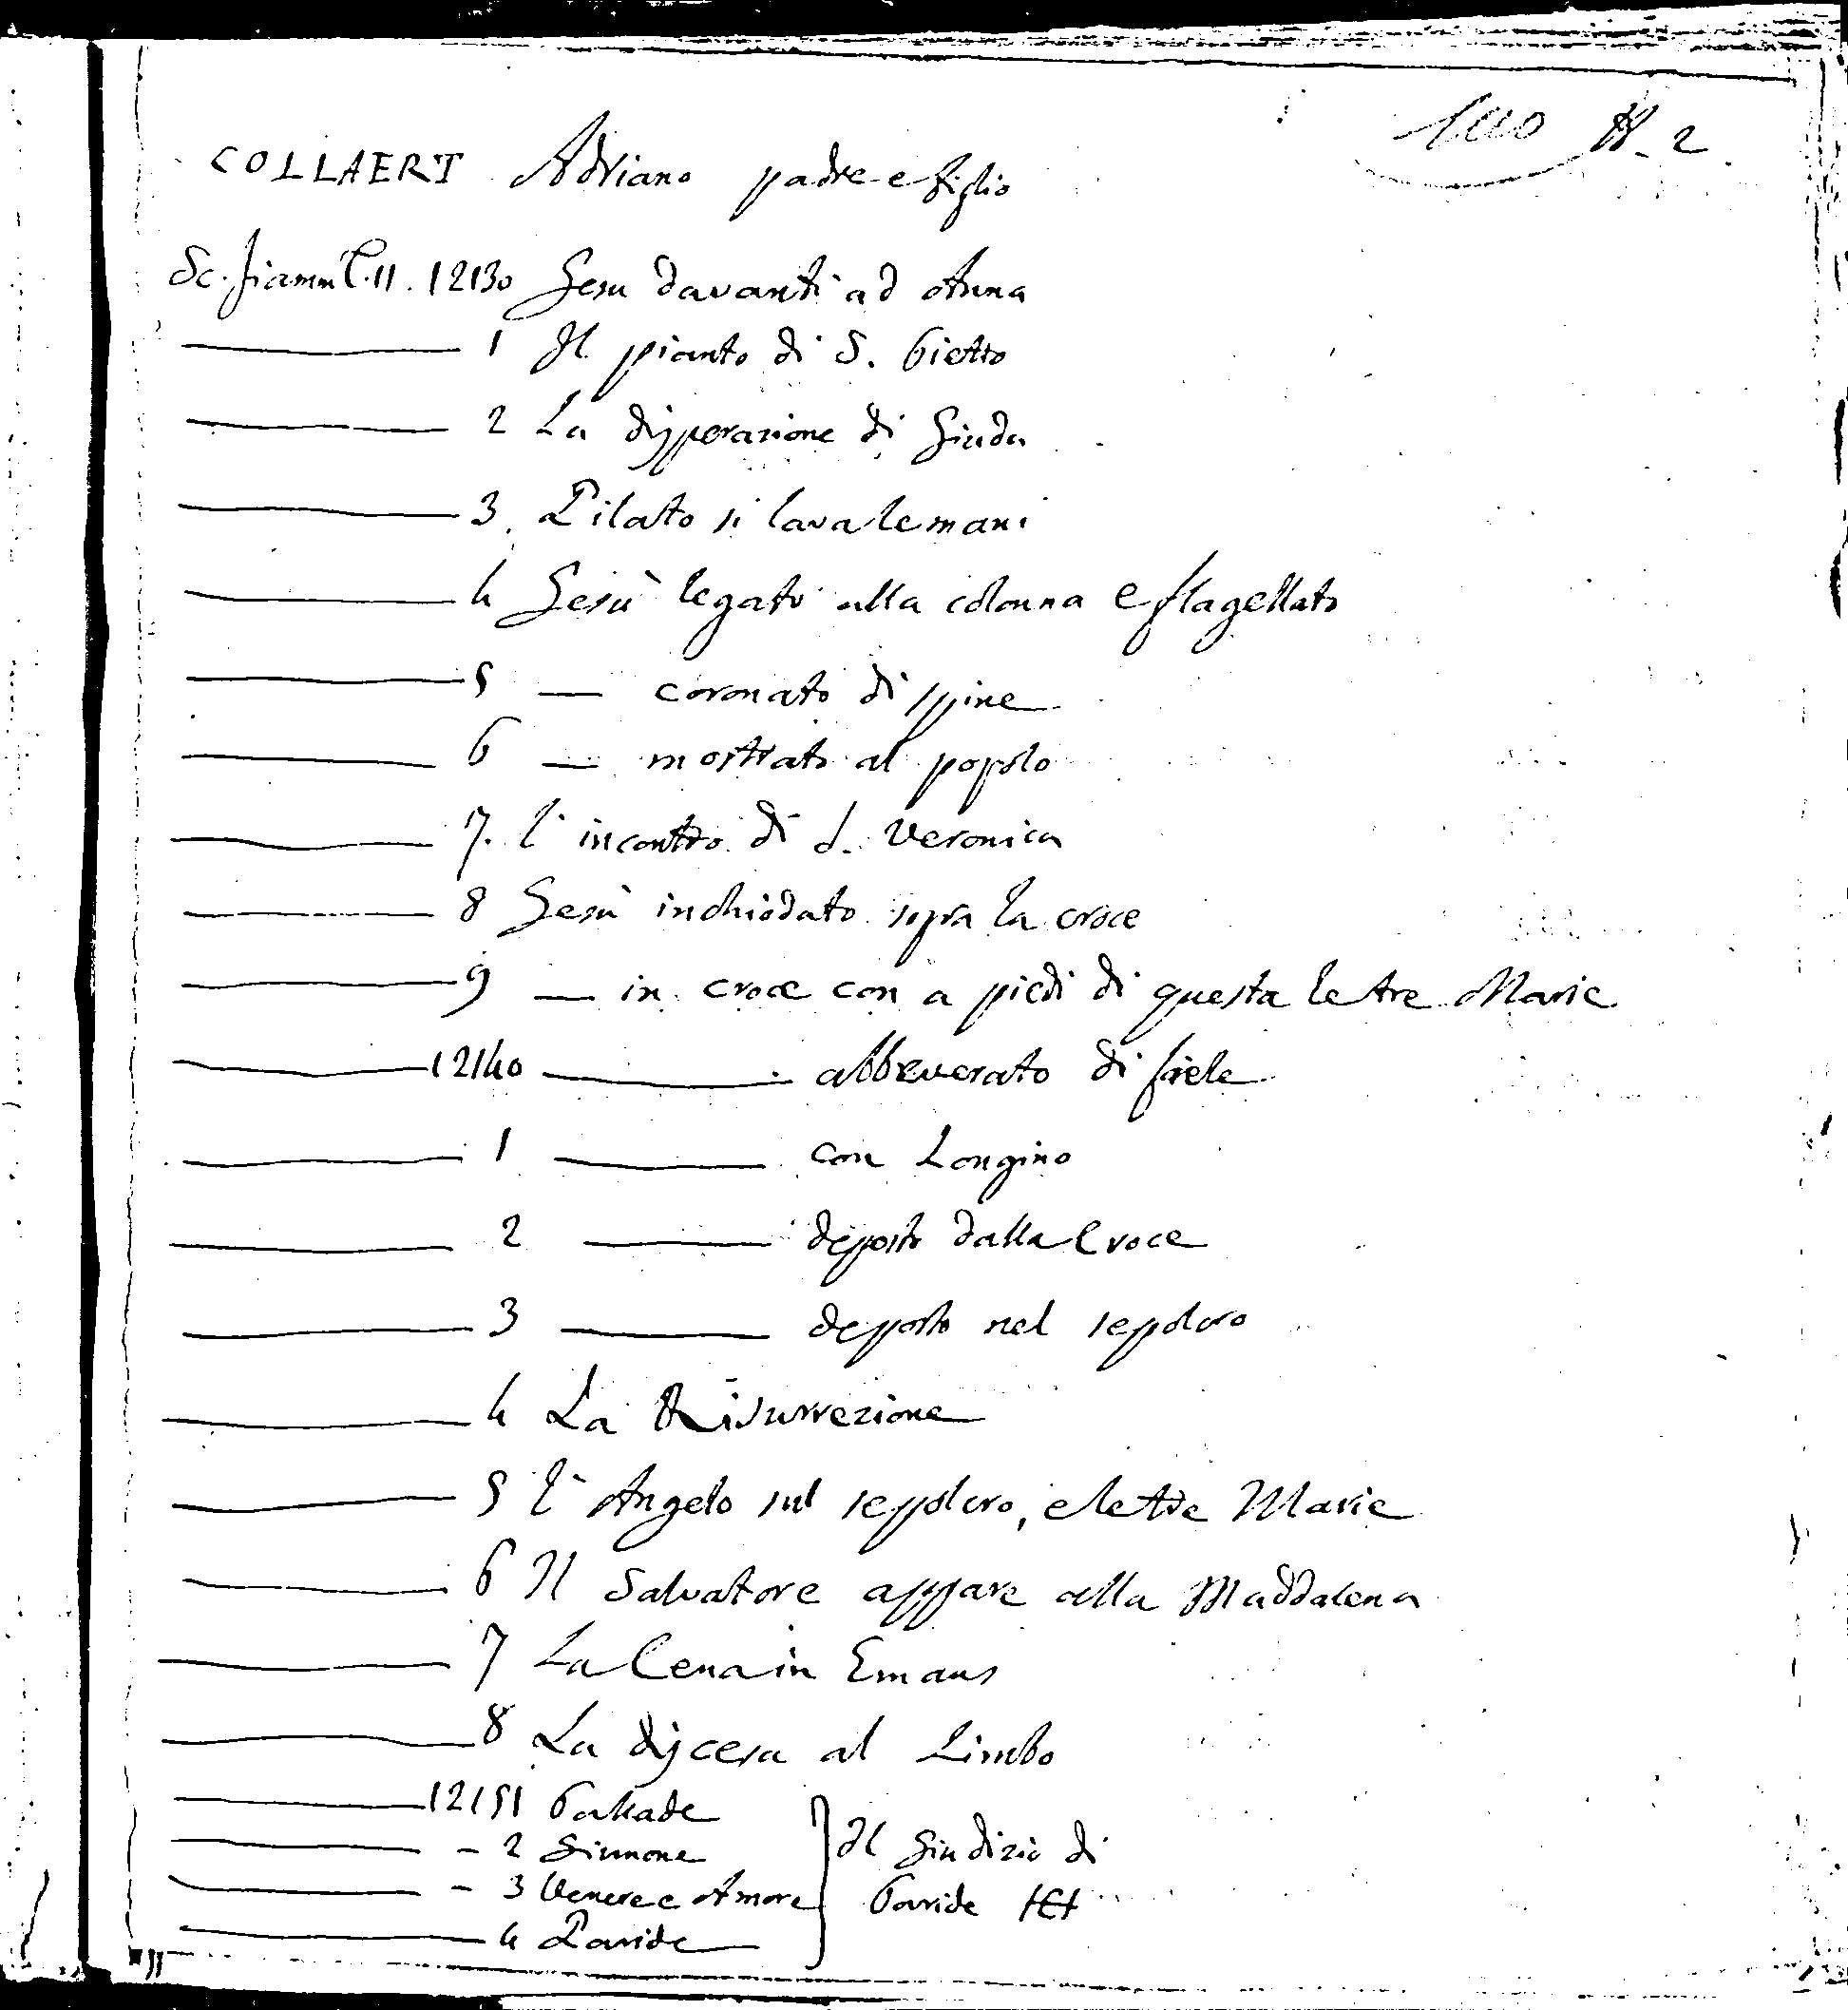 H. 2
COLLAERT Adriano padre e figlio
Sc. fiamm. C. 11. 12130 Gesu davanti ad Anna
1 Il pianto di S. Pietro
2 La disperazione di Giuda
3. Pilato si lava le mani
4 Gesù legato alla colonna e flagellato
5 — coronato di spine
6 — mostrato al popolo
7. l'incontro di S. Veronica
8 Gesù inchiodato sopra la croce
9 — in croce con a piedi di questa le tre Marie
12140 — abbeverato di fiele
1 — con Longino
2 — deposto dalla Croce
3 — deposto nel sepolcro
4 La Risurrezione
5 l'Angelo sul sepolcro, e le tre Marie
6 Il Salvatore appare alla Maddalena
7 La Cena in Emaus
8 La discesa al Limbo
12151 Pallade
- 2 Giunone } Il Giudizio di
- 3 Venere e Amore } Paride
4 Paride